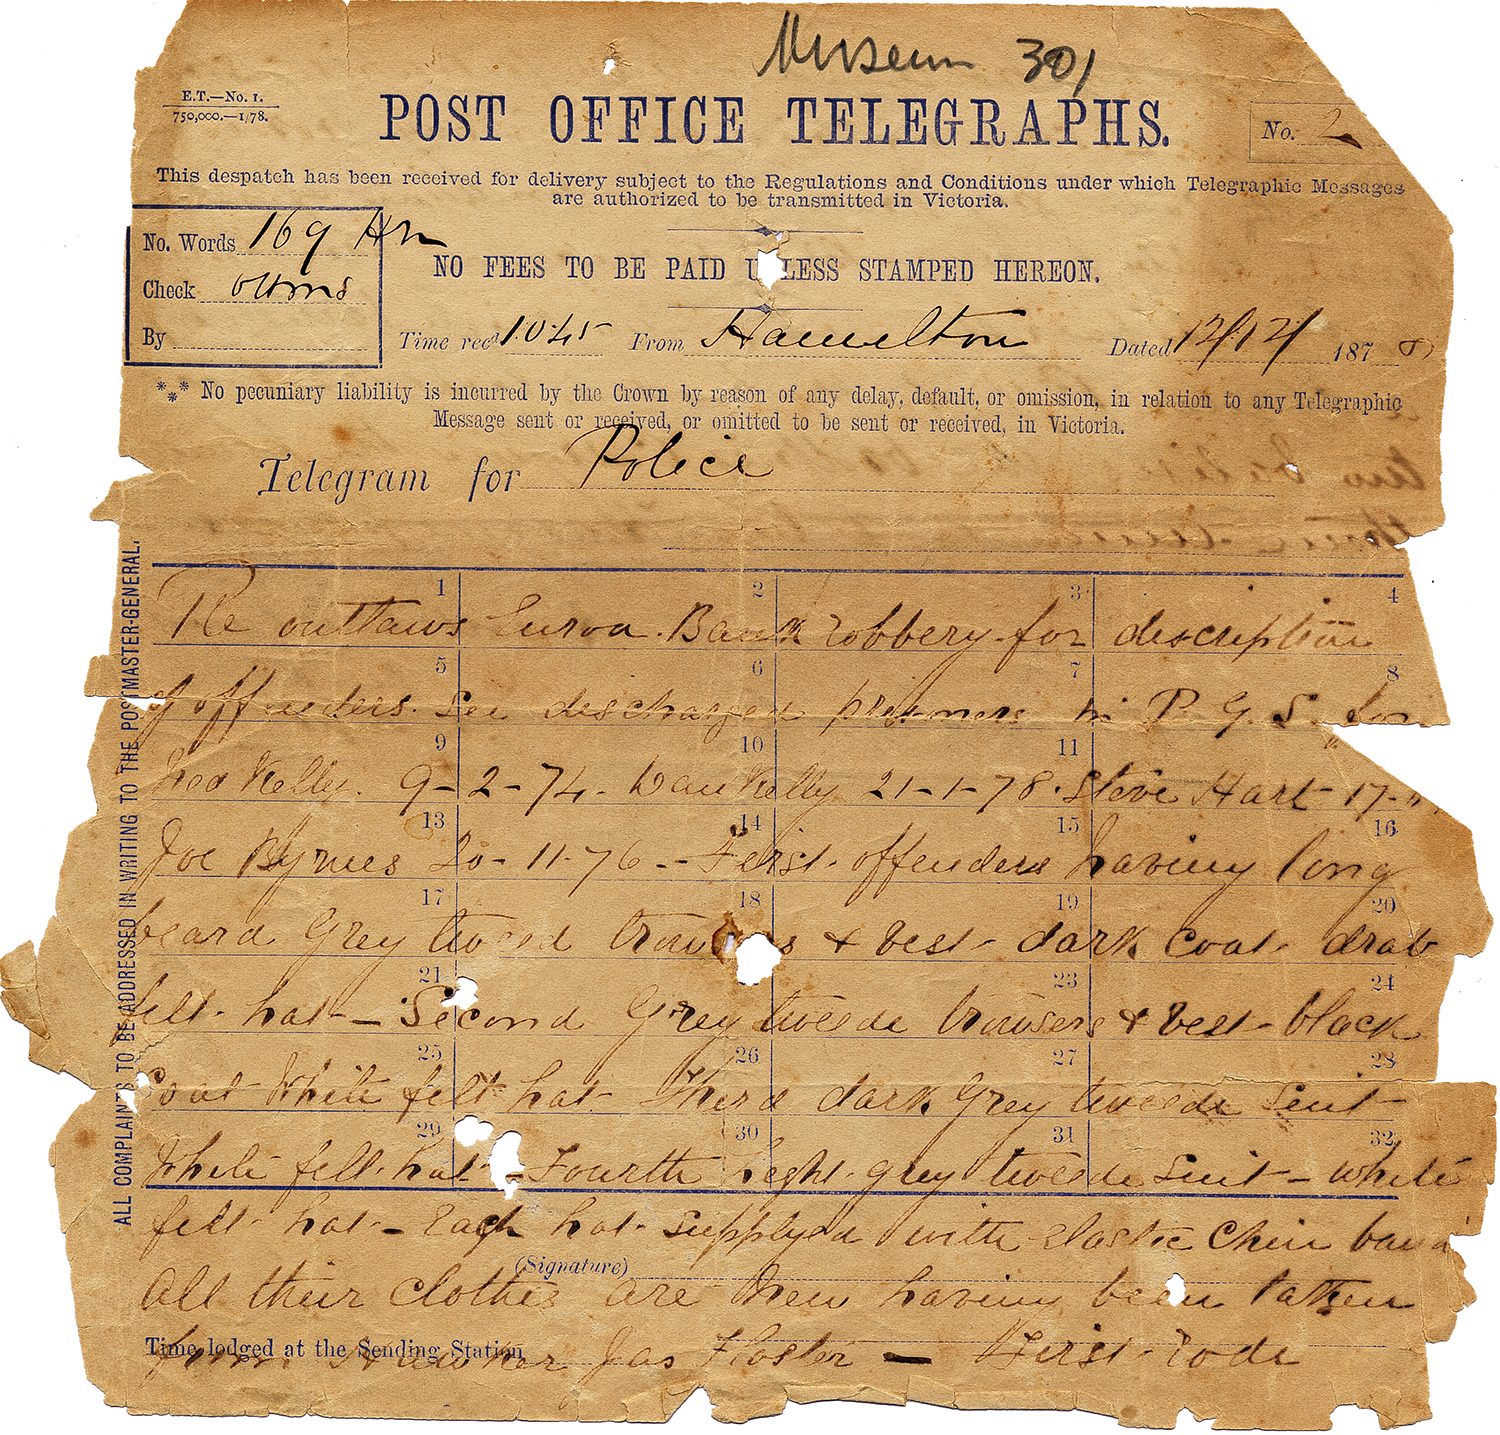 Museum 301
E.T.—No. 1.
750,000.—1/78.
POST OFFICE TELEGRAPHS.
No. 2
This despatch has been received for delivery subject to the Regulations and Conditions under which Telegraphic Messages
are authorized to be transmitted in Victoria.
No. Words 169
Check
By
NO FEES TO BE PAID UNLESS STAMPED HEREON.
Time recd 10.45 From Hamilton Dated 12/12/ 1878
*** No pecuniary liability is incurred by the Crown by reason of any delay, default, or omission, in relation to any Telegraphic
Message sent or received, or omitted to be sent or received, in Victoria.
Telegram for Police
ALL COMPLAINTS TO BE ADDRESSED IN WRITING TO THE POSTMASTER-GENERAL.
1 2 3 4
Re outlaws Euroa Bank robbery for description
5 6 7 8
of offenders. See discharged prisoners in P. G. S. for
9 10 11
Ned Kelly. 9-2-74. Dan Kelly 21-1-78. Steve Hart 17-
13 14 15 16
Joe Byrnes 20-11-76 - First offenders having long
17 18 19 20
beard Grey tweed trousers & vest - dark coat - drab
21 23 24
felt hat - Second Grey tweede trousers & vest - black
25 26 27 28
coat White felt hat - Third dark Grey tweede suit
29 30 31 32
White felt hat - Fourth light grey tweede suit - white
felt hat - Each hat supplyed with elastic chin band
(Signature)
All their clothes are new having been taken
Time lodged at the Sending Station
from Hawker Jas Gloster - First rode